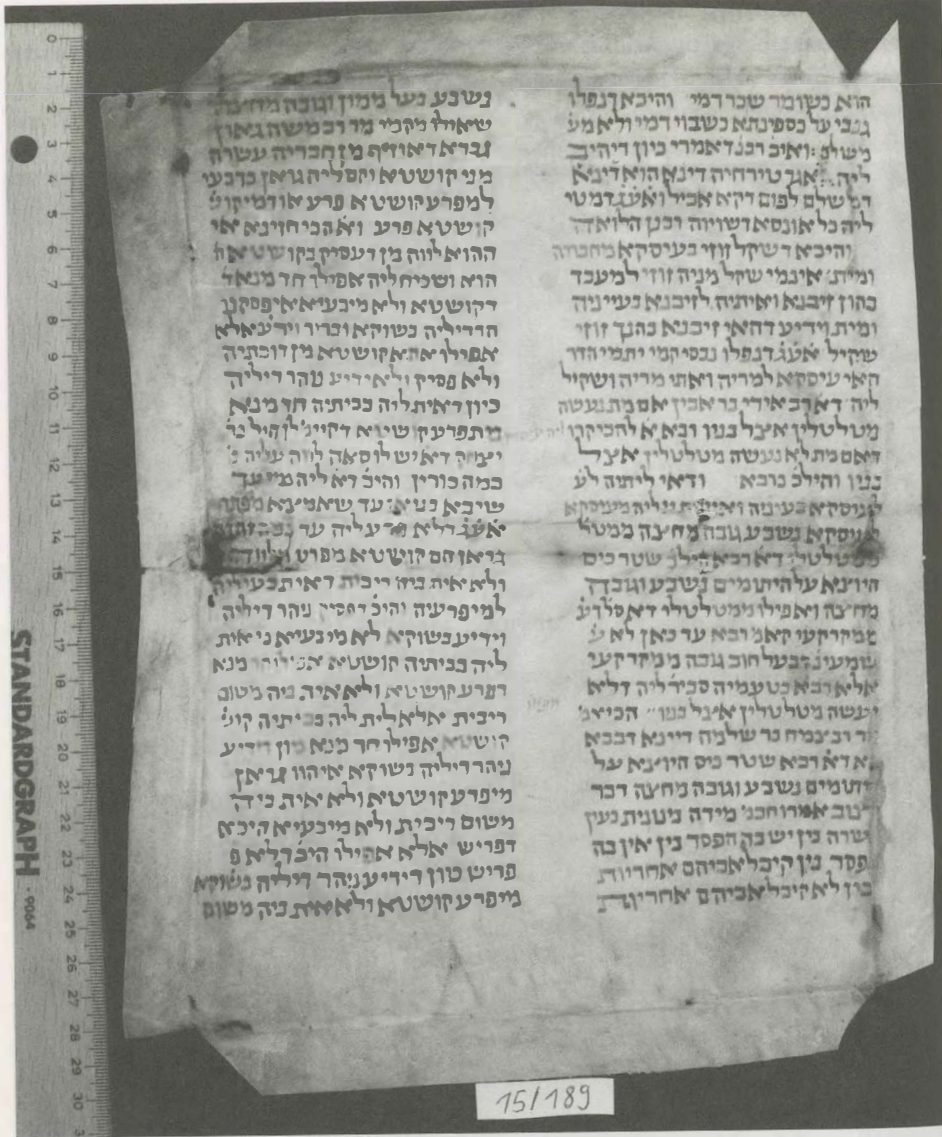 הוא כשומר שכר דמי והיכא דנפלו
גנבי על כספינתא כשבוי דמי ולא מע
משלם : ואיכ רבנ דאמרי כיון דיהיב
ליה אגר טירחיה דינא הוא דינא
דמשלם לפום דקא אכיל ואעג דמטי
ליה כל אונסא דשויוה רבנן הלואה
והיכא דשקל זוזי בעיסקא מחבריה
ומית אי נמי שקל מניה זוזי למעבד
בהון זיבנא ואיתיה לזיבנא בעייניה
ומית וידיע דהאי זיבנא בהנך זוזי
שקיל אעג דנפלו נכסי קמי יתמי הדר
האי עיסקא למריה ואתי מריה ושקיל
ליה דא רב אידי בר אבין אם מת נעשה
מטלטלין אצל בניו ורבא א להכי קרו
דאם מת לא נעשה מטלטלין אצל
בניו והילכ כרבא ודאי ליתיה לע
לעיסקא בעיניה
לעיסקא נשבע גובה מחצה ממטל
ממטלטלי דא רבא הילכ שטר כיס
היוצא על היתומים נשבע וגובה
מחצה ואפילו ממטלטלי דאסלדע
ממקרקעי קאמ רבא עד כאן לא ש
שמעינ דבעל חוב גובה ממקרקעי
אלא רבא כטעמיה סביר ליה דלא
יעשה מטלטלין אצל בניו
רב צמח בר שלמה דיינא דבבא
דא רבא שטר כיס היוצא על
יתומים נשבע וגובה מחצה דבר
אמרו חכמ מידה בינונית כעין
פשרה בין יש בה הפסד בין אין בה
פסד בין קיבל אביהם אחריות
בין לא קיבל אביהם אחריות
נשבע בעל ממון וגובה מחצה
שאילו מקמי מר רב משה גאון
גברא דאוזיף מן חבריה עשרה
מני קושטא וקסליה גואן כדבעי
למפרע קושטא פרע או דמי קוש
קושטא פרע ואהכי חזינא אי
ההוא לווה מן דעסיק בקושטא ה
הוא ושכיח ליה אפילו חד מנא ד
דקושטא ולא מיבעיא איפסקנו
הרדיליה בשוקא וברור וידע אלא
אפילו אתא קושטא מן דוכתיה
ולא פסיק ולא ידיע נהר דיליה
כיון דאית ליה בביתיה חד מנא
מתפרע קושטא דקיימ לן הילל בר
דאיש לוסאה לווה עליה כ
כמה כורין והיכ דא ליה
שיבא בני או עד שאמצא מפתח
אעג דלא עליה עד
גראן הם קושטא מפרע
ולא אית ביה ריבית דאית בעיליה
למיפרעיה והיכ דפסיק נהר דיליה
וידיע בשוקא לא מיבעיא ני אית
ליה בביתיה קושטא אפילו חד מנא
דפרע קושטא ולא אית ביה משום
ריבית אלא לית ליה בביתיה קוש
קושטא אפילו חד מנא כיון דידיע
ניהר דיליה בשוקא איהוו גראן
מיפרע קושטא ולא אית ביה
משום ריבית ולא מיבעיא היכא
דפריש אלא אפילו היכ דלא פ
פריש כיון דידיע ניהר דיליה בשוקא
מיפרע קושטא ולא אית ביה משום
0
1
2
3
4
5
6
7
8
9
10
11
12
13
14
15
16
17
18
19
20
21
22
23
24
25
26
27
28
29
30
STANDARDGRAPH · 9064
15/189